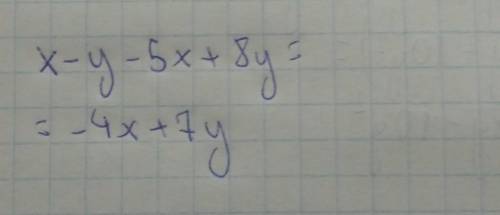 x-y-5x+8y=
=-4x+7y